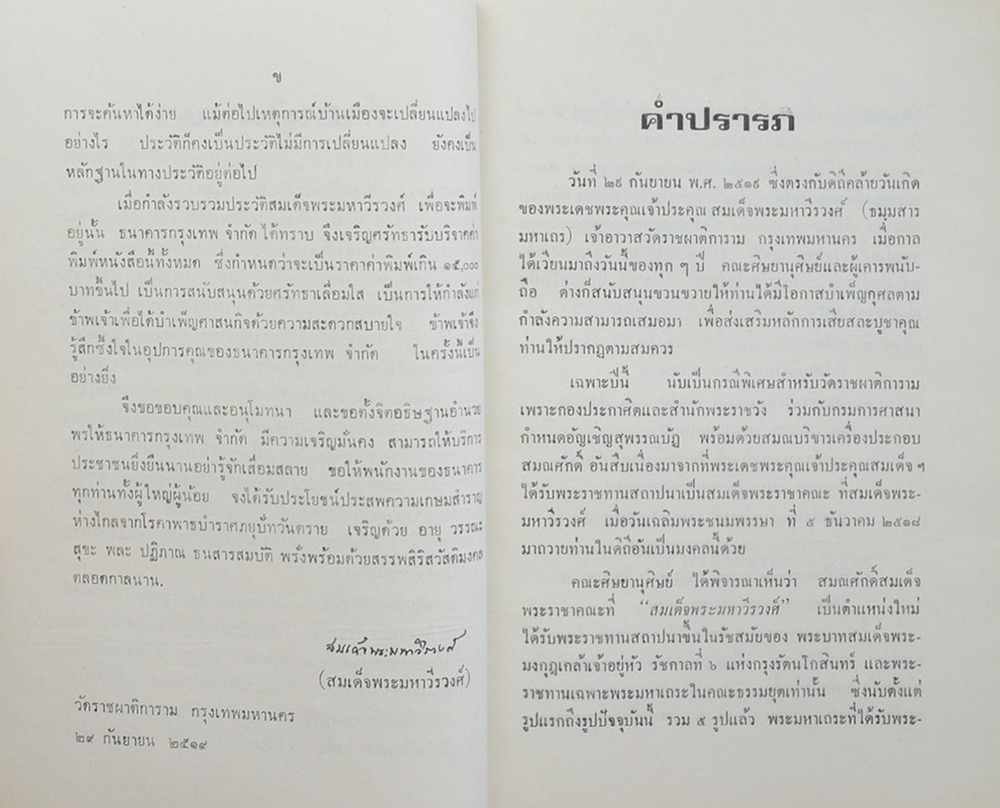 ข
การจะค้นหาได้ง่าย แม้ต่อไปเหตุการณ์บ้านเมืองจะเปลี่ยนแปลงไป
อย่างไร ประวัติก็คงเป็นประวัติไม่มีการเปลี่ยนแปลง ยังคงเป็น
หลักฐานในทางประวัติอยู่ต่อไป
เมื่อกำลังรวบรวมประวัติสมเด็จพระมหาวีรวงศ์ เพื่อจะพิมพ์
อยู่นั้น ธนาคารกรุงเทพ จำกัด ได้ทราบ จึงเจริญศรัทธารับบริจาคค่า
พิมพ์หนังสือนี้ทั้งหมด ซึ่งกำหนดว่าจะเป็นราคาค่าพิมพ์เกิน ๑๕,๐๐๐
บาทขึ้นไป เป็นการสนับสนุนด้วยศรัทธาเลื่อมใส เป็นการให้กำลังแก่
ข้าพเจ้าเพื่อได้บำเพ็ญศาสนกิจด้วยความสะดวกสบายใจ ข้าพเจ้าจึง
รู้สึกซึ้งใจในอุปการคุณของธนาคารกรุงเทพ จำกัด ในครั้งนี้เป็น
อย่างยิ่ง
จึงขอขอบคุณและอนุโมทนา และขอตั้งจิตอธิษฐานอำนวย
พรให้ธนาคารกรุงเทพ จำกัด มีความเจริญมั่นคง สามารถให้บริการ
ประชาชนยั่งยืนนานอย่ารู้จักเสื่อมสลาย ขอให้พนักงานของธนาคาร
ทุกท่านทั้งผู้ใหญ่ผู้น้อย จงได้รับประโยชน์ประสพความเกษมสำราญ
ห่างไกลจากโรคาพาธบำราศภยุบัทวันตราย เจริญด้วย อายุ วรรณะ
สุขะ พละ ปฏิภาณ ธนสารสมบัติ พรั่งพร้อมด้วยสรรพสิริสวัสดิมงคล
ตลอดกาลนาน.
สมเด็จพระมหาวีรวงศ์
(สมเด็จพระมหาวีรวงศ์)
วัดราชผาติการาม กรุงเทพมหานคร
๒๙ กันยายน ๒๕๑๙
คำปรารภ
วันที่ ๒๙ กันยายน พ.ศ. ๒๕๑๙ ซึ่งตรงกับดิถีคล้ายวันเกิด
ของพระเดชพระคุณเจ้าประคุณ สมเด็จพระมหาวีรวงศ์ (ธมฺมสาร
มหาเถร) เจ้าอาวาสวัดราชผาติการาม กรุงเทพมหานคร เมื่อกาล
ได้เวียนมาถึงวันนี้ของทุก ๆ ปี คณะศิษยานุศิษย์และผู้เคารพนับ-
ถือ ต่างก็สนับสนุนขวนขวายให้ท่านได้มีโอกาสบำเพ็ญกุศลตาม
กำลังความสามารถเสมอมา เพื่อส่งเสริมหลักการเสียสละบูชาคุณ
ท่านให้ปรากฏตามสมควร
เฉพาะปีนี้ นับเป็นกรณีพิเศษสำหรับวัดราชผาติการาม
เพราะกองประกาศิตและสำนักพระราชวัง ร่วมกับกรมการศาสนา
กำหนดอัญเชิญสุพรรณบัฏ พร้อมด้วยสมณบริขารเครื่องประกอบ
สมณศักดิ์ อันสืบเนื่องมาจากที่พระเดชพระคุณเจ้าประคุณสมเด็จ ฯ
ได้รับพระราชทานสถาปนาเป็นสมเด็จพระราชาคณะ ที่สมเด็จพระ-
มหาวีรวงศ์ เมื่อวันเฉลิมพระชนมพรรษา ที่ ๕ ธันวาคม ๒๕๑๘
มาถวายท่านในดิถีอันเป็นมงคลนี้ด้วย
คณะศิษยานุศิษย์ ได้พิจารณาเห็นว่า สมณศักดิ์สมเด็จ
พระราชาคณะที่ “สมเด็จพระมหาวีรวงศ์” เป็นตำแหน่งใหม่
ได้รับพระราชทานสถาปนาขึ้นในรัชสมัยของ พระบาทสมเด็จพระ-
มงกุฎเกล้าเจ้าอยู่หัว รัชกาลที่ ๖ แห่งกรุงรัตนโกสินทร์ และพระ-
ราชทานเฉพาะพระมหาเถระในคณะธรรมยุตเท่านั้น ซึ่งนับตั้งแต่
รูปแรกถึงรูปปัจจุบันนี้ รวม ๕ รูปแล้ว พระมหาเถระที่ได้รับพระ-